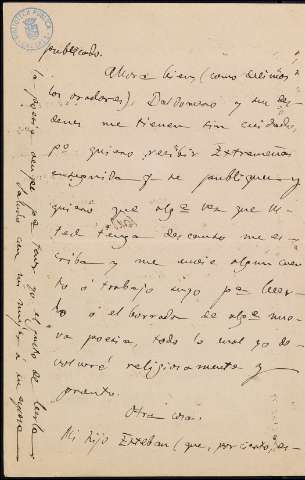 BIBLIOTECA PUBLICA
publicado.
Ahora bien (como decimos
los oradores), Baldomero y sus des-
denes me tienen sin cuidado,
pº quiero recibir Extremeñas
enseguida q. se publiquen y
quiero que algª vez que us-
ted tenga descanso me es-
criba y me envie algun cuen-
to ó trabajo suyo pª leer-
lo ó el borrador de algª nue-
va poesia, todo lo cual yo de-
volveré religiosamente y
pronto.
Otra cosa.
Mi hijo Esteban (que, por cierto, es-
la poesia aunque pª tener yo el gusto de leerla
Saluda con mi mujer á su esposa